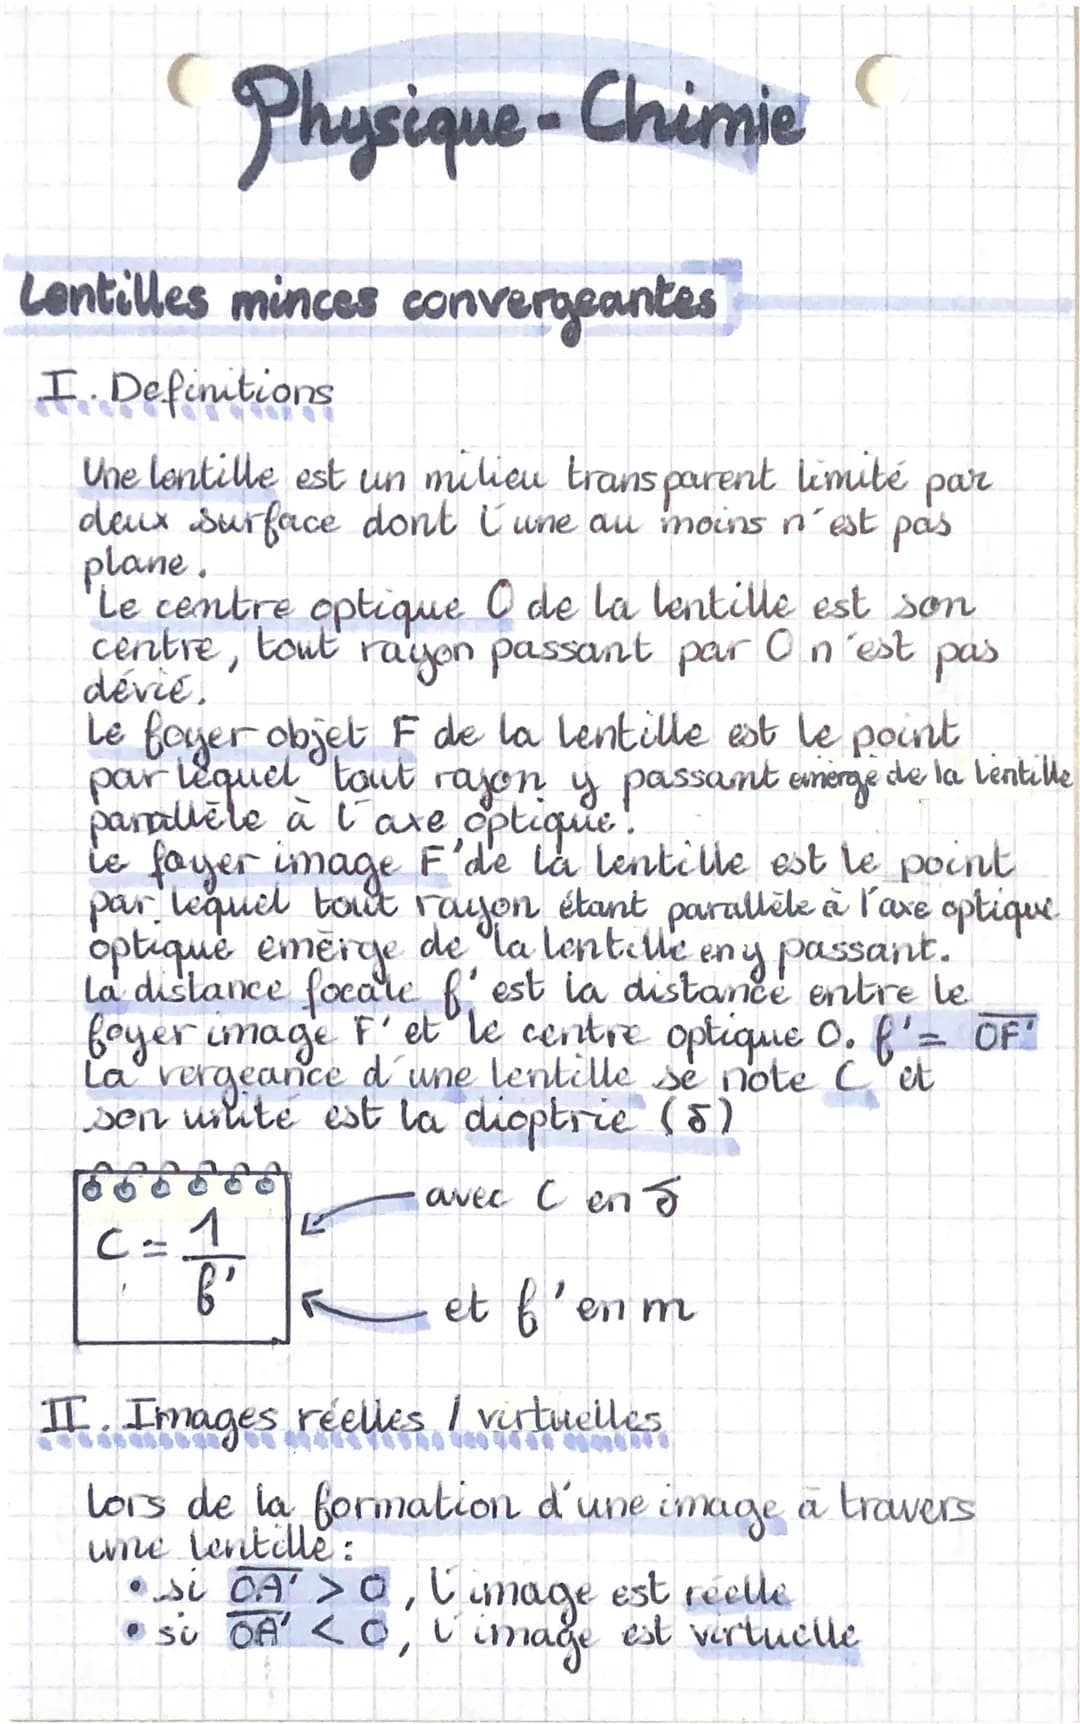 Physique-Chimie
Lentilles minces convergeantes
I. Definitions
Une lentille est un milieu transparent limité par
deux surface dont l'une au moins n'est pas
plane.
Le centre optique O de la lentille est son
centre, tout rayon passant par O n'est pas
dévié.
Le foyer objet F de la lentille est le point
par lequel tout rayon y passant émerge de la lentille
parallèle à l'axe optique.
Le foyer image F' de la lentille est le point
par lequel tout rayon étant parallèle à l'axe optique
optique émerge de la lentille en y passant.
La distance focale f' est la distance entre le
foyer image F' et le centre optique O. f' = OF'
La vergeance d'une lentille se note C et
son unité est la dioptrie (δ)
avec C en δ
C = 1/f'
et f' en m
II. Images réelles / virtuelles
Lors de la formation d'une image à travers
une lentille :
• si OA' > 0, l'image est réelle
• si OA' < 0, l'image est virtuelle